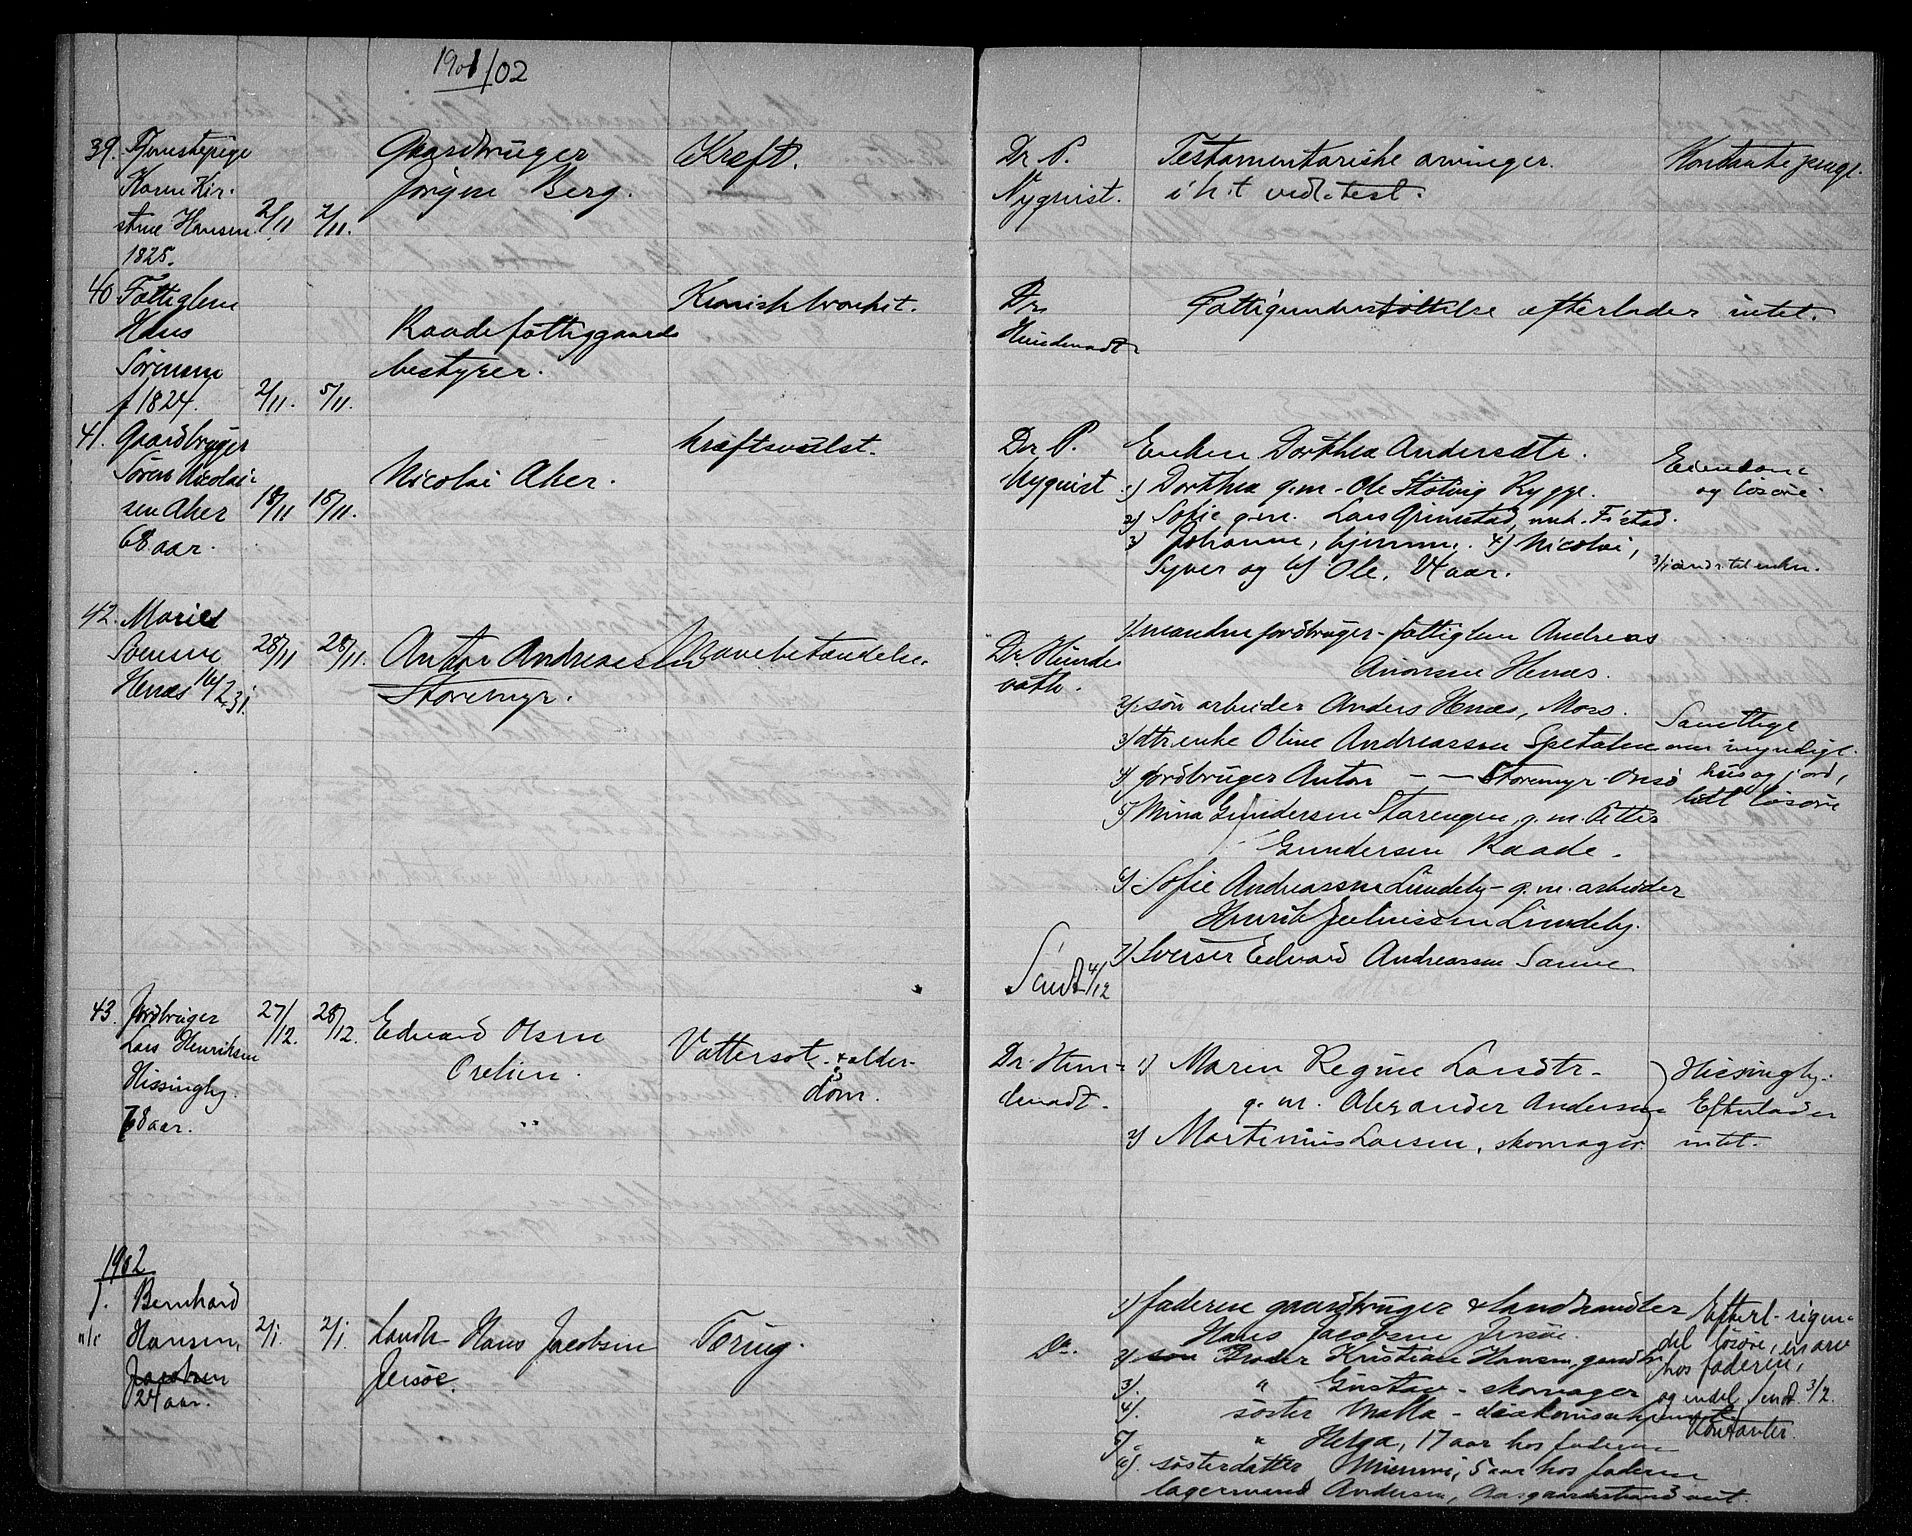 1901/02
39. Tjenestepige
Karen Kir-
stine Hansen 2/11 2/11.
1825.
Gaardbruger
Jörgen Berg.
Kræft.
Dr P.
Nyqvist.
Testamentariske arvinger.
i h.t vedl. test.
Kontante penge.
40 Fattiglem
Hans
Sörensen
f 1824. 2/11. 5/11.
Raade fattiggaards
bestyrer.
Kronisk bronkit.
Dr.
Hundevadt
Fattigunderstöttelse efterlader intet.
41. Gaardbruger
Sören Nicolai-
sen Aker 18/11 18/11.
68 aar.
Nicolai Aker.
Kræftsvulst.
Dr P.
Nyqvist
Enken Dorthea Andersdtr.
1) Dorthea g.m. Ole Stölvig Rygge.
2) Sofie g.m. Lars Grimestad,
3) Johanne, hjemme. 4) Nicolai,
Syver og 6) Ole, 24 aar.
Eiendom
og lösöre.
42. Marie
Henæs 16/2 31.
28/11 28/11.
Anton Andreassen
Storemyr.
Mavebetændelse.
Dr. Hunde
vath.
1) manden jordbruger-fattiglem Andreas
Henæs.
2) sön arbeider Anders Henæs, Moss.
3) dtr. enke Oline Andreassen Spetalen
4) jordbruger Anton - — Storemyr Onsö
5) Mina Gundersen Starengen, g.m. Petter
Gundersen Raade.
6) Sofie Andreassen Lundeby - g.m. arbeider
Henrik Julinissen Lundeby.
7) Edvard Andreassen
Samtlige
myndige.
hus og jord,
lidt lösöre
Sendt 4/12
43. Jordbruger
Lars Henriksen
Hissingby.
78 aar.
27/12. 28/12.
Edvard Olsen
Vattersot & alder-
dom.
Dr. Hun-
devadt.
1) Maren Regine Larsdtr.
g.m. Alexander Andersen
2) Martinius Larsen, skomager.
Hissingby.
Efterlader
intet.
1902
1. Bernhard
Hansen,
Jacobsen
24 aar.
2/1. 2/1
Landh. Hans Jacobsen
Jersöe.
Tæring.
Do.
1) faderen gaardbruger & landhandler
Hans Jacobsen Jersöe.
2) sön Broder Kristian Hansen,
3). " Gustav - skomager
4). söster Malla - diakonisse
5). " Helga, 17 aar hos faderen
6). sösterdatter Minni, 5 aar hos faderen
lagermand Andersen,
Efterl.
del lösöre, en arv
hos faderen,
og endel Sendt 3/2.
Kontanter.